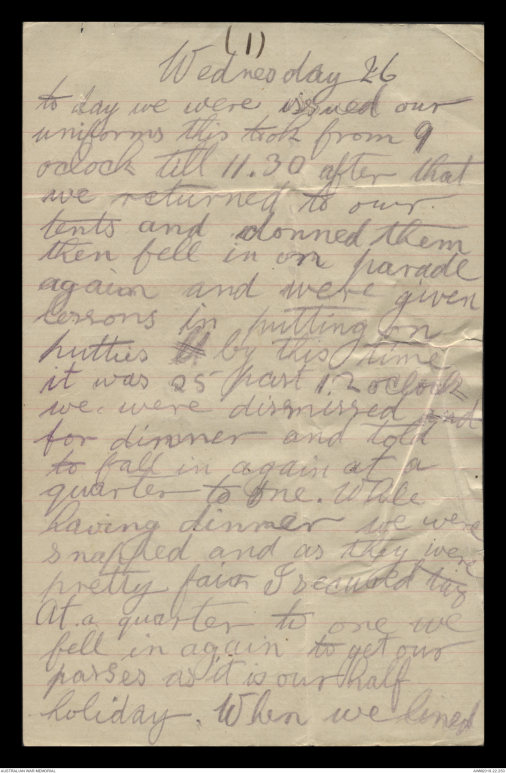 (1)
Wednesday 26
to day we were issued our
uniforms this took from 9
oclock till 11.30 after that
we returned to our
tents and donned them
then fell in on parade
again and were given
lessons in putting on
putties by this time
it was 25 past 12 oclock
we were dismissed and
for dinner and told
to fall in again at a
quarter to one. While
having dinner we were
snapped and as they were
pretty fair I secured
At a quarter to one we
fell in again to get our
passes as it is our half
holiday. When we lined
AUSTRALIAN WAR MEMORIAL